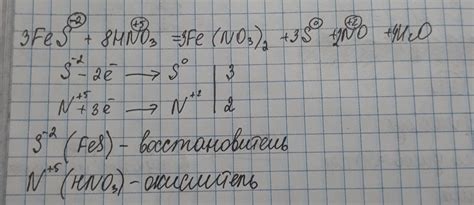 3FeS⁻² + 8HN⁺⁵O₃ = 3Fe(NO₃)₂ + 3S⁰ + 2N⁺²O + 4H₂O
S⁻² - 2ē → S⁰ | 3
N⁺⁵ + 3ē → N⁺² | 2
S⁻² (FeS) - восстановитель
N⁺⁵ (HNO₃) - окислитель